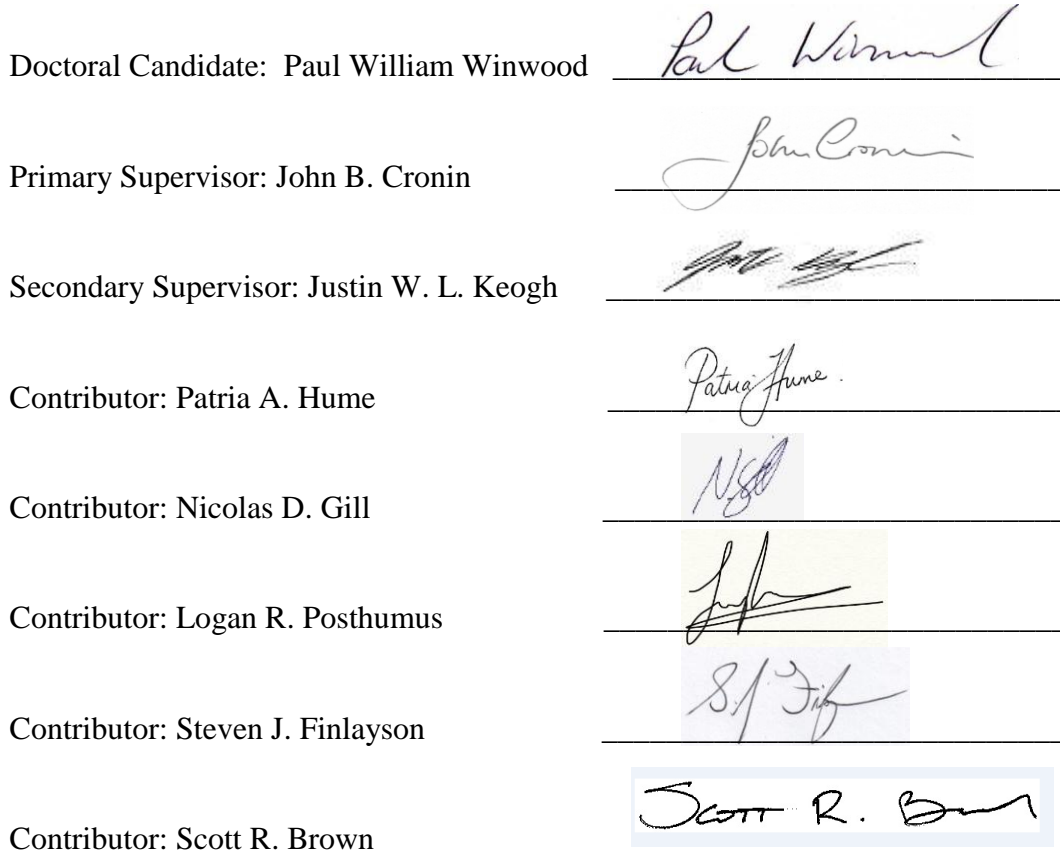 Doctoral Candidate: Paul William Winwood Paul Winwood
Primary Supervisor: John B. Cronin John Cronin
Secondary Supervisor: Justin W. L. Keogh
Contributor: Patria A. Hume Patria Hume.
Contributor: Nicolas D. Gill
Contributor: Logan R. Posthumus
Contributor: Steven J. Finlayson
Contributor: Scott R. Brown SCOTT R. Brown